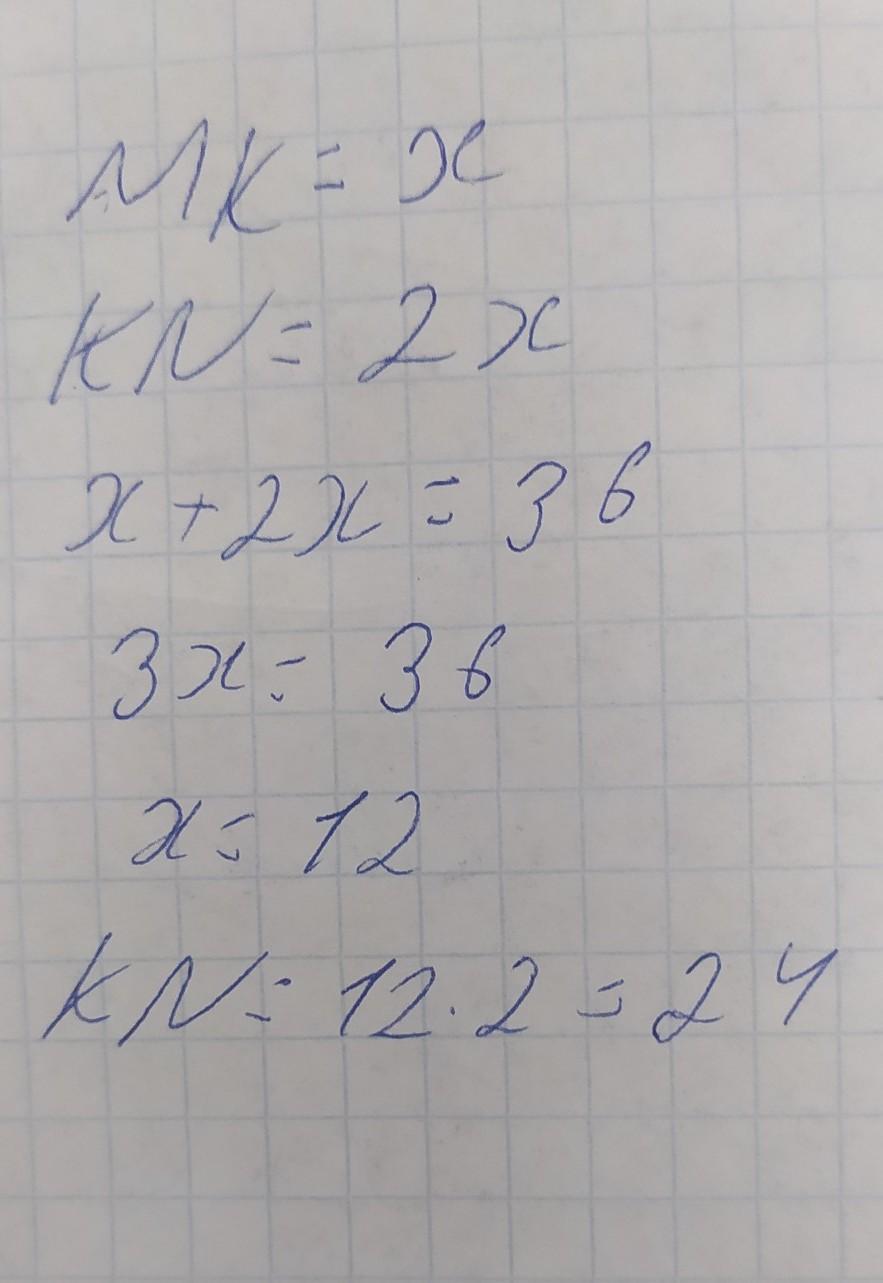 MK = x
KN = 2x
x + 2x = 36
3x = 36
x = 12
KN = 12 · 2 = 24